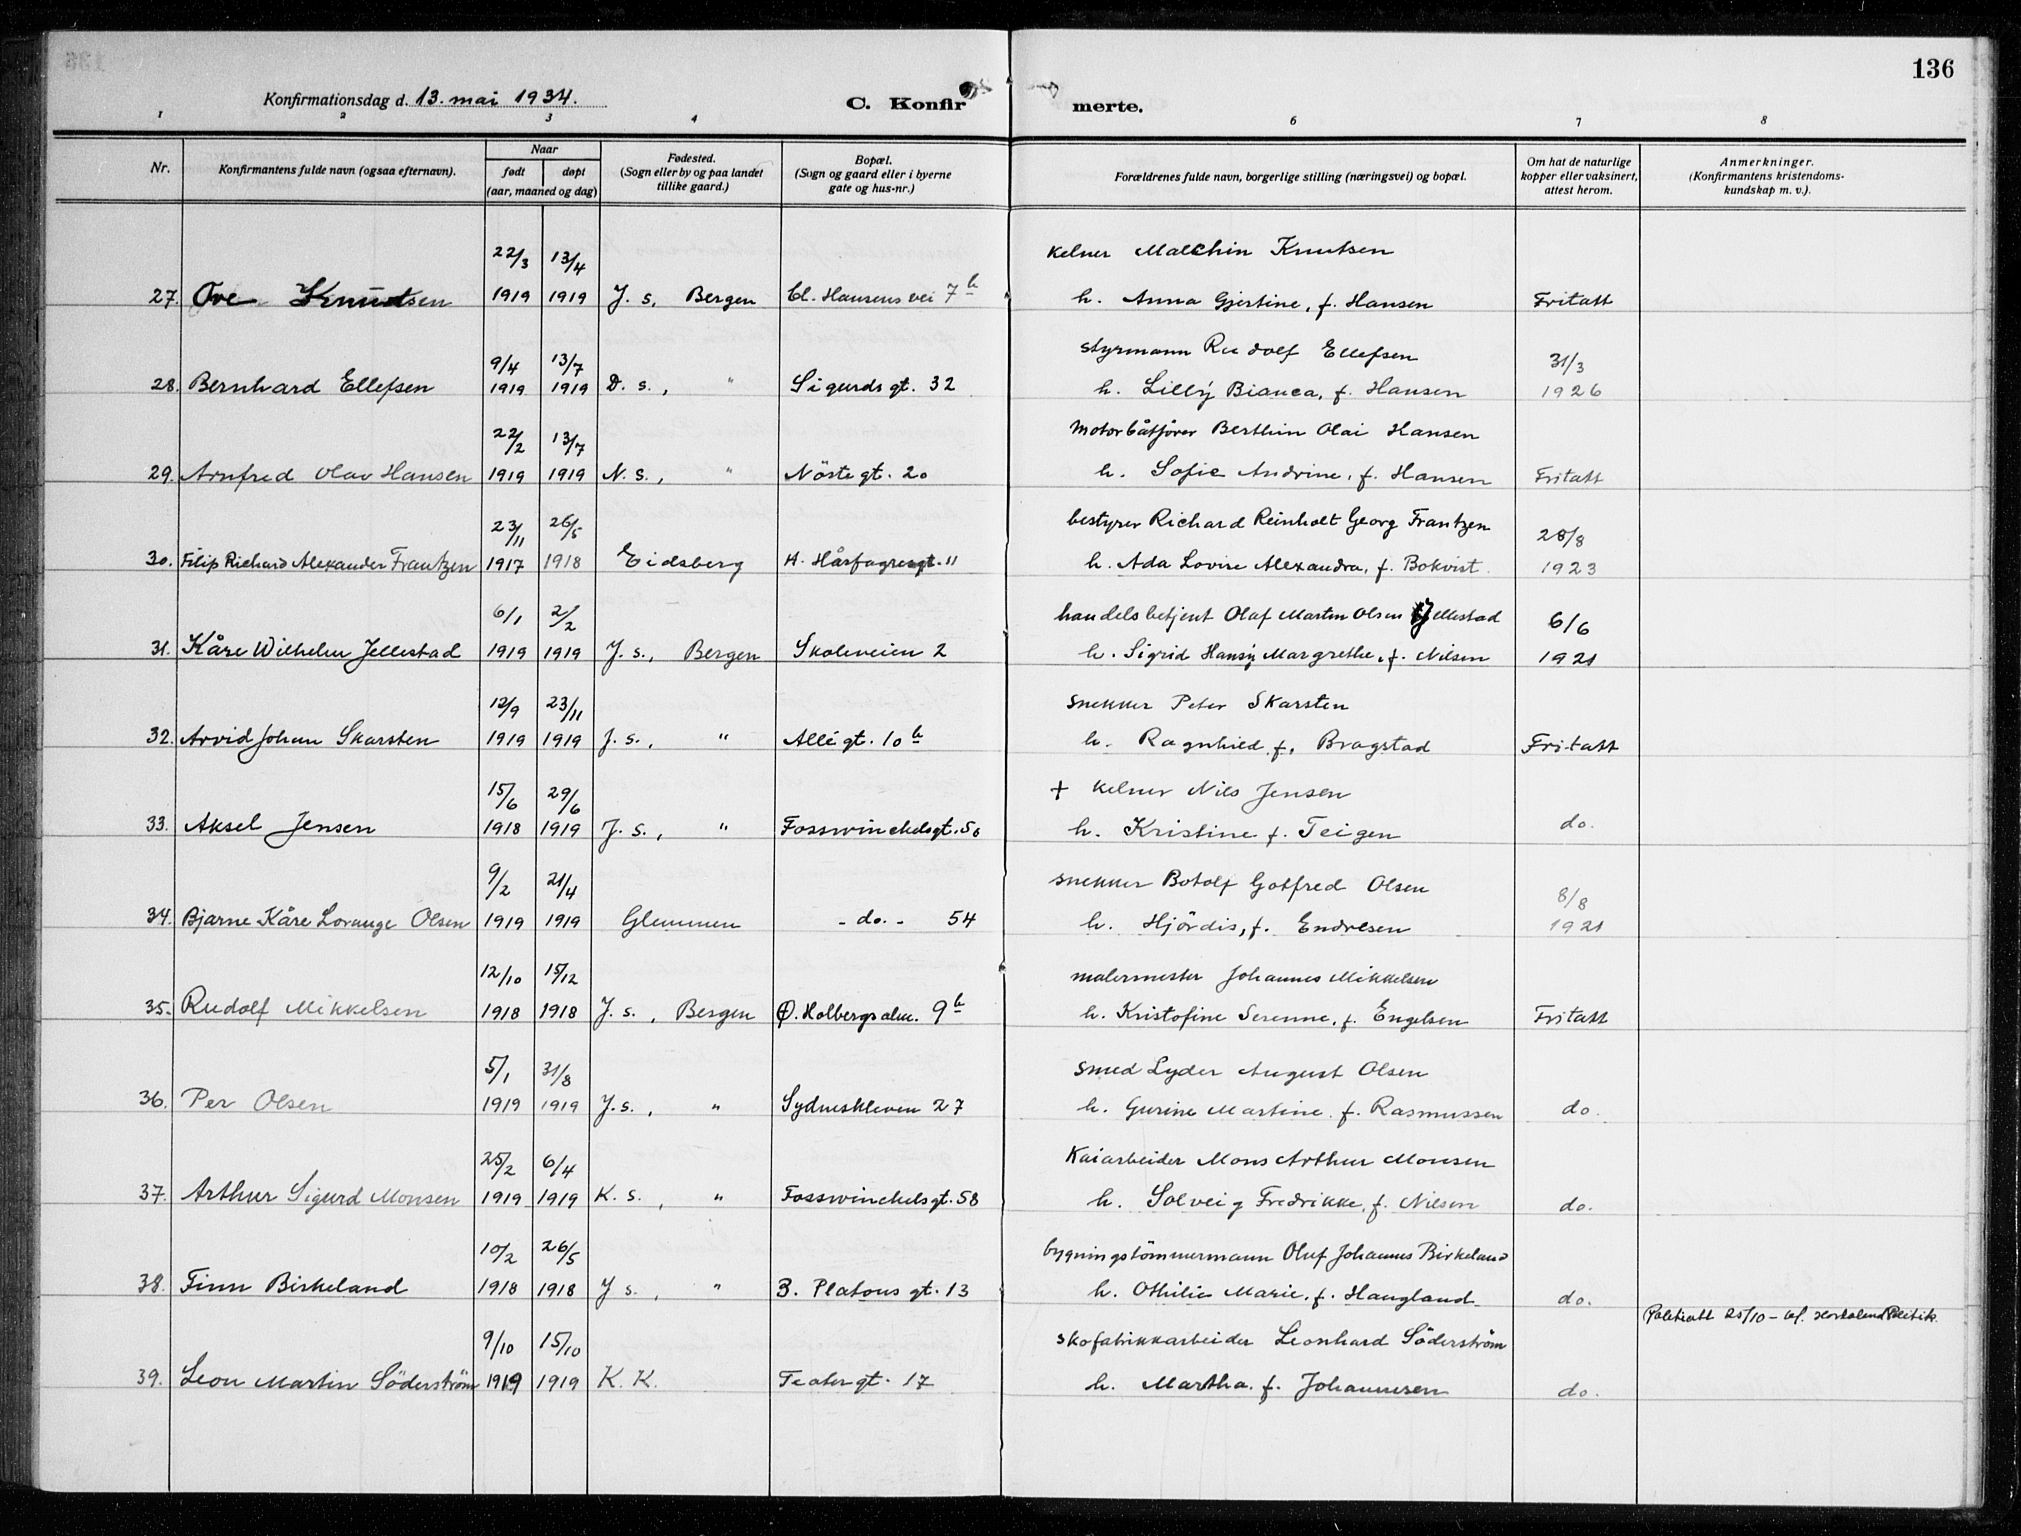 136
Konfirmationsdag d. 13. mai 1934.
C. Konfir merte.
1 2 3 4 6 7 8
Nr.
Konfirmantens fulde navn (ogsaa efternavn).
Naar
født
døpt
(aar, maaned og dag)
Fødested.
(Sogn eller by og paa landet
tillike gaard.)
Bopæl.
(Sogn og gaard eller i byerne
gate og hus-nr.)
Forældrenes fulde navn, borgerlige stilling (næringsvei) og bopæl.
Om hat de naturlige
kopper eller vaksinert,
attest herom.
Anmerkninger.
(Konfirmantens kristendoms-
kundskap m. v.).
22/3 13/4 kelner Malchin Knutsen
27. Ove Knudsen 1919 1919 J. s., Bergen Cl. Hansens vei 7b h. Anna Gjertine, f. Hansen Fritatt
9/4 13/7 styrmann Rudolf Ellefsen 31/3
28. Bernhard Ellefsen 1919 1919 D. s., " Sigurdsgt. 32 h. Lilly Bianca, f. Hansen 1926
22/2 13/7 Motorbåtfører Berthin Olai Hansen
29. Arnfred Olav Hansen 1919 1919 N. s., " Nöstegt. 20 h. Sofie Andrine, f. Hansen Fritatt
23/11 26/5 bestyrer Richard Reinholt Georg Frantzen 28/8
30. Filip Richard Alexander Frantzen 1917 1918 Eidsberg H. Hårfagresgt. 11 h. Ada Lovise Alexandra, f. Bokvist 1923
6/1 2/2 handelsbetjent Olaf Martin Olsen Jellestad 6/6
31. Kåre Wilhelm Jellestad 1919 1919 J. s., Bergen Skoleveien 2 h. Sigrid Hansy Margrethe, f. Nilsen 1921
12/9 23/11 snekker Peter Skarsten
32. Arvid Johan Skarsten 1919 1919 J. s., " Allégt. 10b h. Ragnhild, f. Bragstad Fritatt
15/6 29/6 + kelner Nils Jensen
33. Aksel Jensen 1918 1919 J. s., " Fosswinckelsgt. 50 h. Kristine f. Teigen do.
9/2 21/4 snekker Botolf Gotfred Olsen 8/8
34. Bjarne Kåre Lorange Olsen 1919 1919 Glemmen - do. - 54 h. Hjördis, f. Endresen 1921
12/10 15/12 malermester Johannes Mikkelsen
35. Rudolf Mikkelsen 1918 1918 J. s., Bergen Ø. Holbergsalm. 9b h. Kristofine Serenne, f. Engelsen Fritatt
5/1 31/8 smed Lyder August Olsen
36. Per Olsen 1919 1919 J. s., " Sydneskleven 27 h. Gurine Martine f. Rasmussen do.
25/2 6/4 Kaiarbeider Mons Arthur Monsen
37. Arthur Sigurd Monsen 1919 1919 K. s. " Fosswinckelsgt. 58 h. Solveig Fredrikke, f. Nilsen do.
10/2 26/5 bygningstömmermann Oluf Johannes Birkeland
38. Finn Birkeland 1918 1918 J s., " B. Platous gt. 13 h. Othilie Marie, f. Haugland do.
9/10 15/10 skofabrikkarbeider Leonhard Söderström
39. Leon Martin Söderström 1919 1919 K. K. Teatergt. 17 h. Martha f. Johannesen do.